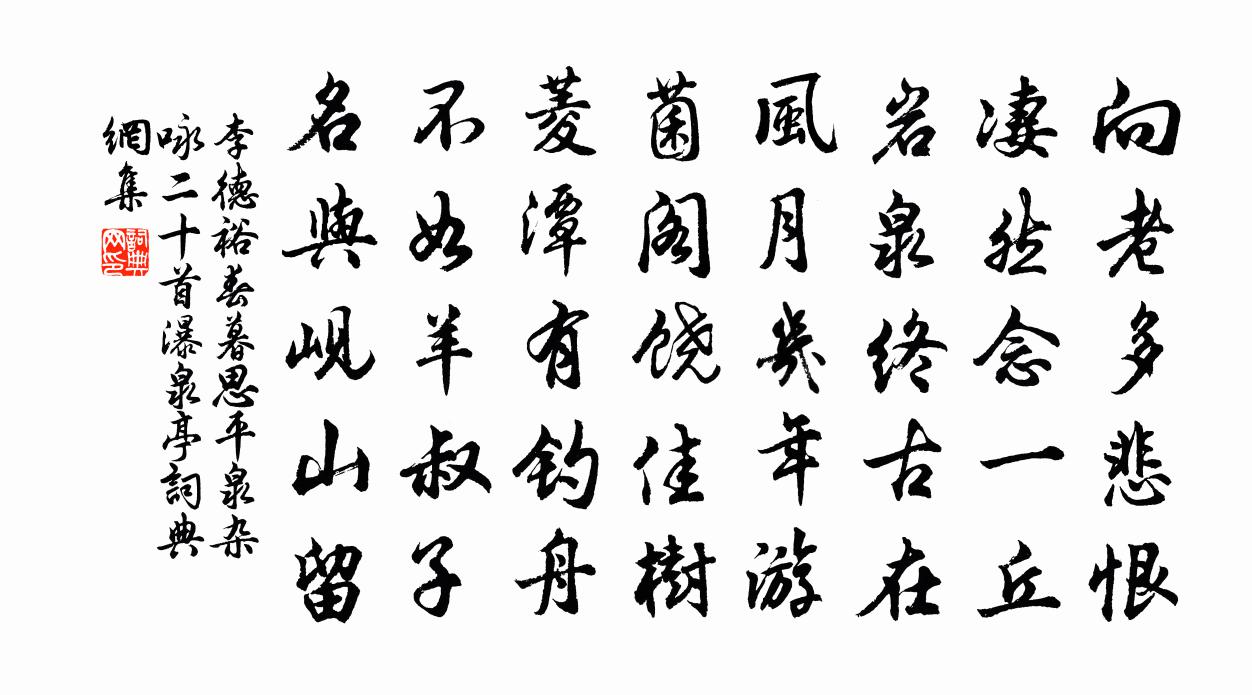 向老多悲恨
凄然念一丘
岩泉终古在
風月幾年游
菌阁饶佳樹
菱潭有钓舟
不如羊叔子
名與峴山留
李德裕春暮思平泉杂
咏二十首瀑泉亭詞典
網集
詞典
网印